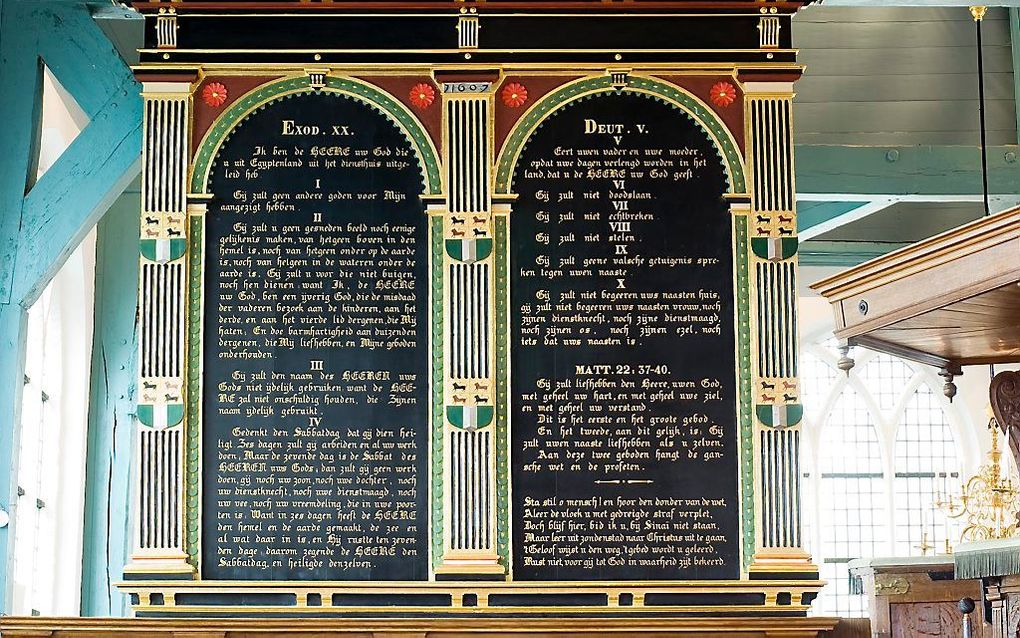 1607
EXOD. XX.
Ik ben de HEERE uw God die
u uit Egyptenland uit het diensthuis uitge-
leid heb
I
Gij zult geen andere goden voor Mijn
aangezigt hebben.
II
Gij zult u geen gesneden beeld noch eenige
gelijkenis maken, van hetgeen boven in den
hemel is, noch van hetgeen onder op de aarde
is, noch van hetgeen in de wateren onder de
aarde is. Gij zult u voor die niet buigen,
noch hen dienen, want Ik, de HEERE
uw God, ben een ijverig God, die de misdaad
der vaderen bezoek aan de kinderen, aan het
derde, en aan het vierde lid dergenen, die Mij
haten; En doe barmhartigheid aan duizenden
dergenen, die Mij liefhebben, en Mijne geboden
onderhouden.
III
Gij zult den naam des HEEREN uws
Gods niet ijdelijk gebruiken, want de HEE-
RE zal niet onschuldig houden, die Zijnen
naam ijdelijk gebruikt.
IV
Gedenkt den Sabbatdag, dat gij dien hei-
ligt. Zes dagen zult gij arbeiden en al uw werk
doen; Maar de zevende dag is de Sabbat des
HEEREN uws Gods; dan zult gij geen werk
doen, gij noch uw zoon, noch uwe dochter, noch
uw dienstknecht, noch uwe dienstmaagd, noch
uw vee, noch uw vreemdeling, die in uwe poor-
ten is. Want in zes dagen heeft de HEERE
den hemel en de aarde gemaakt, de zee en
al wat daar in is, en Hij rustte ten zeven-
den dage; daarom zegende de HEERE den
Sabbatdag, en heiligde denzelven.
DEUT. V.
V
Eert uwen vader en uwe moeder,
opdat uwe dagen verlengd worden in het
land, dat u de HEERE uw God geeft.
VI
Gij zult niet doodslaan.
VII
Gij zult niet echtbreken.
VIII
Gij zult niet stelen.
IX
Gij zult geene valsche getuigenis spre-
ken tegen uwen naaste.
X
Gij zult niet begeeren uws naasten huis,
gij zult niet begeeren uws naasten vrouw, noch
zijnen dienstknecht, noch zijne dienstmaagd,
noch zijnen os, noch zijnen ezel, noch
iets dat uws naasten is.
MATT. 22; 37-40.
Gij zult liefhebben den Heere, uwen God,
met geheel uw hart, en met geheel uwe ziel,
en met geheel uw verstand.
Dit is het eerste en het groote gebod.
En het tweede, aan dit gelijk, is: Gij
zult uwen naaste liefhebben als u zelven.
Aan deze twee geboden hangt de gan-
sche wet en de profeten.
Sta stil o mensch! en hoor den donder van de wet,
Aleer de vloek u met gedreigde straf verplet,
Doch blijf hier, bid ik u, bij Sinai niet staan,
Maar leer uit zondenstad naar Christus uit te gaan,
't Geloof wijst u den weg, 't gebed wordt u geleerd,
Rust niet, voor gij tot God in waarheid zijt bekeerd.